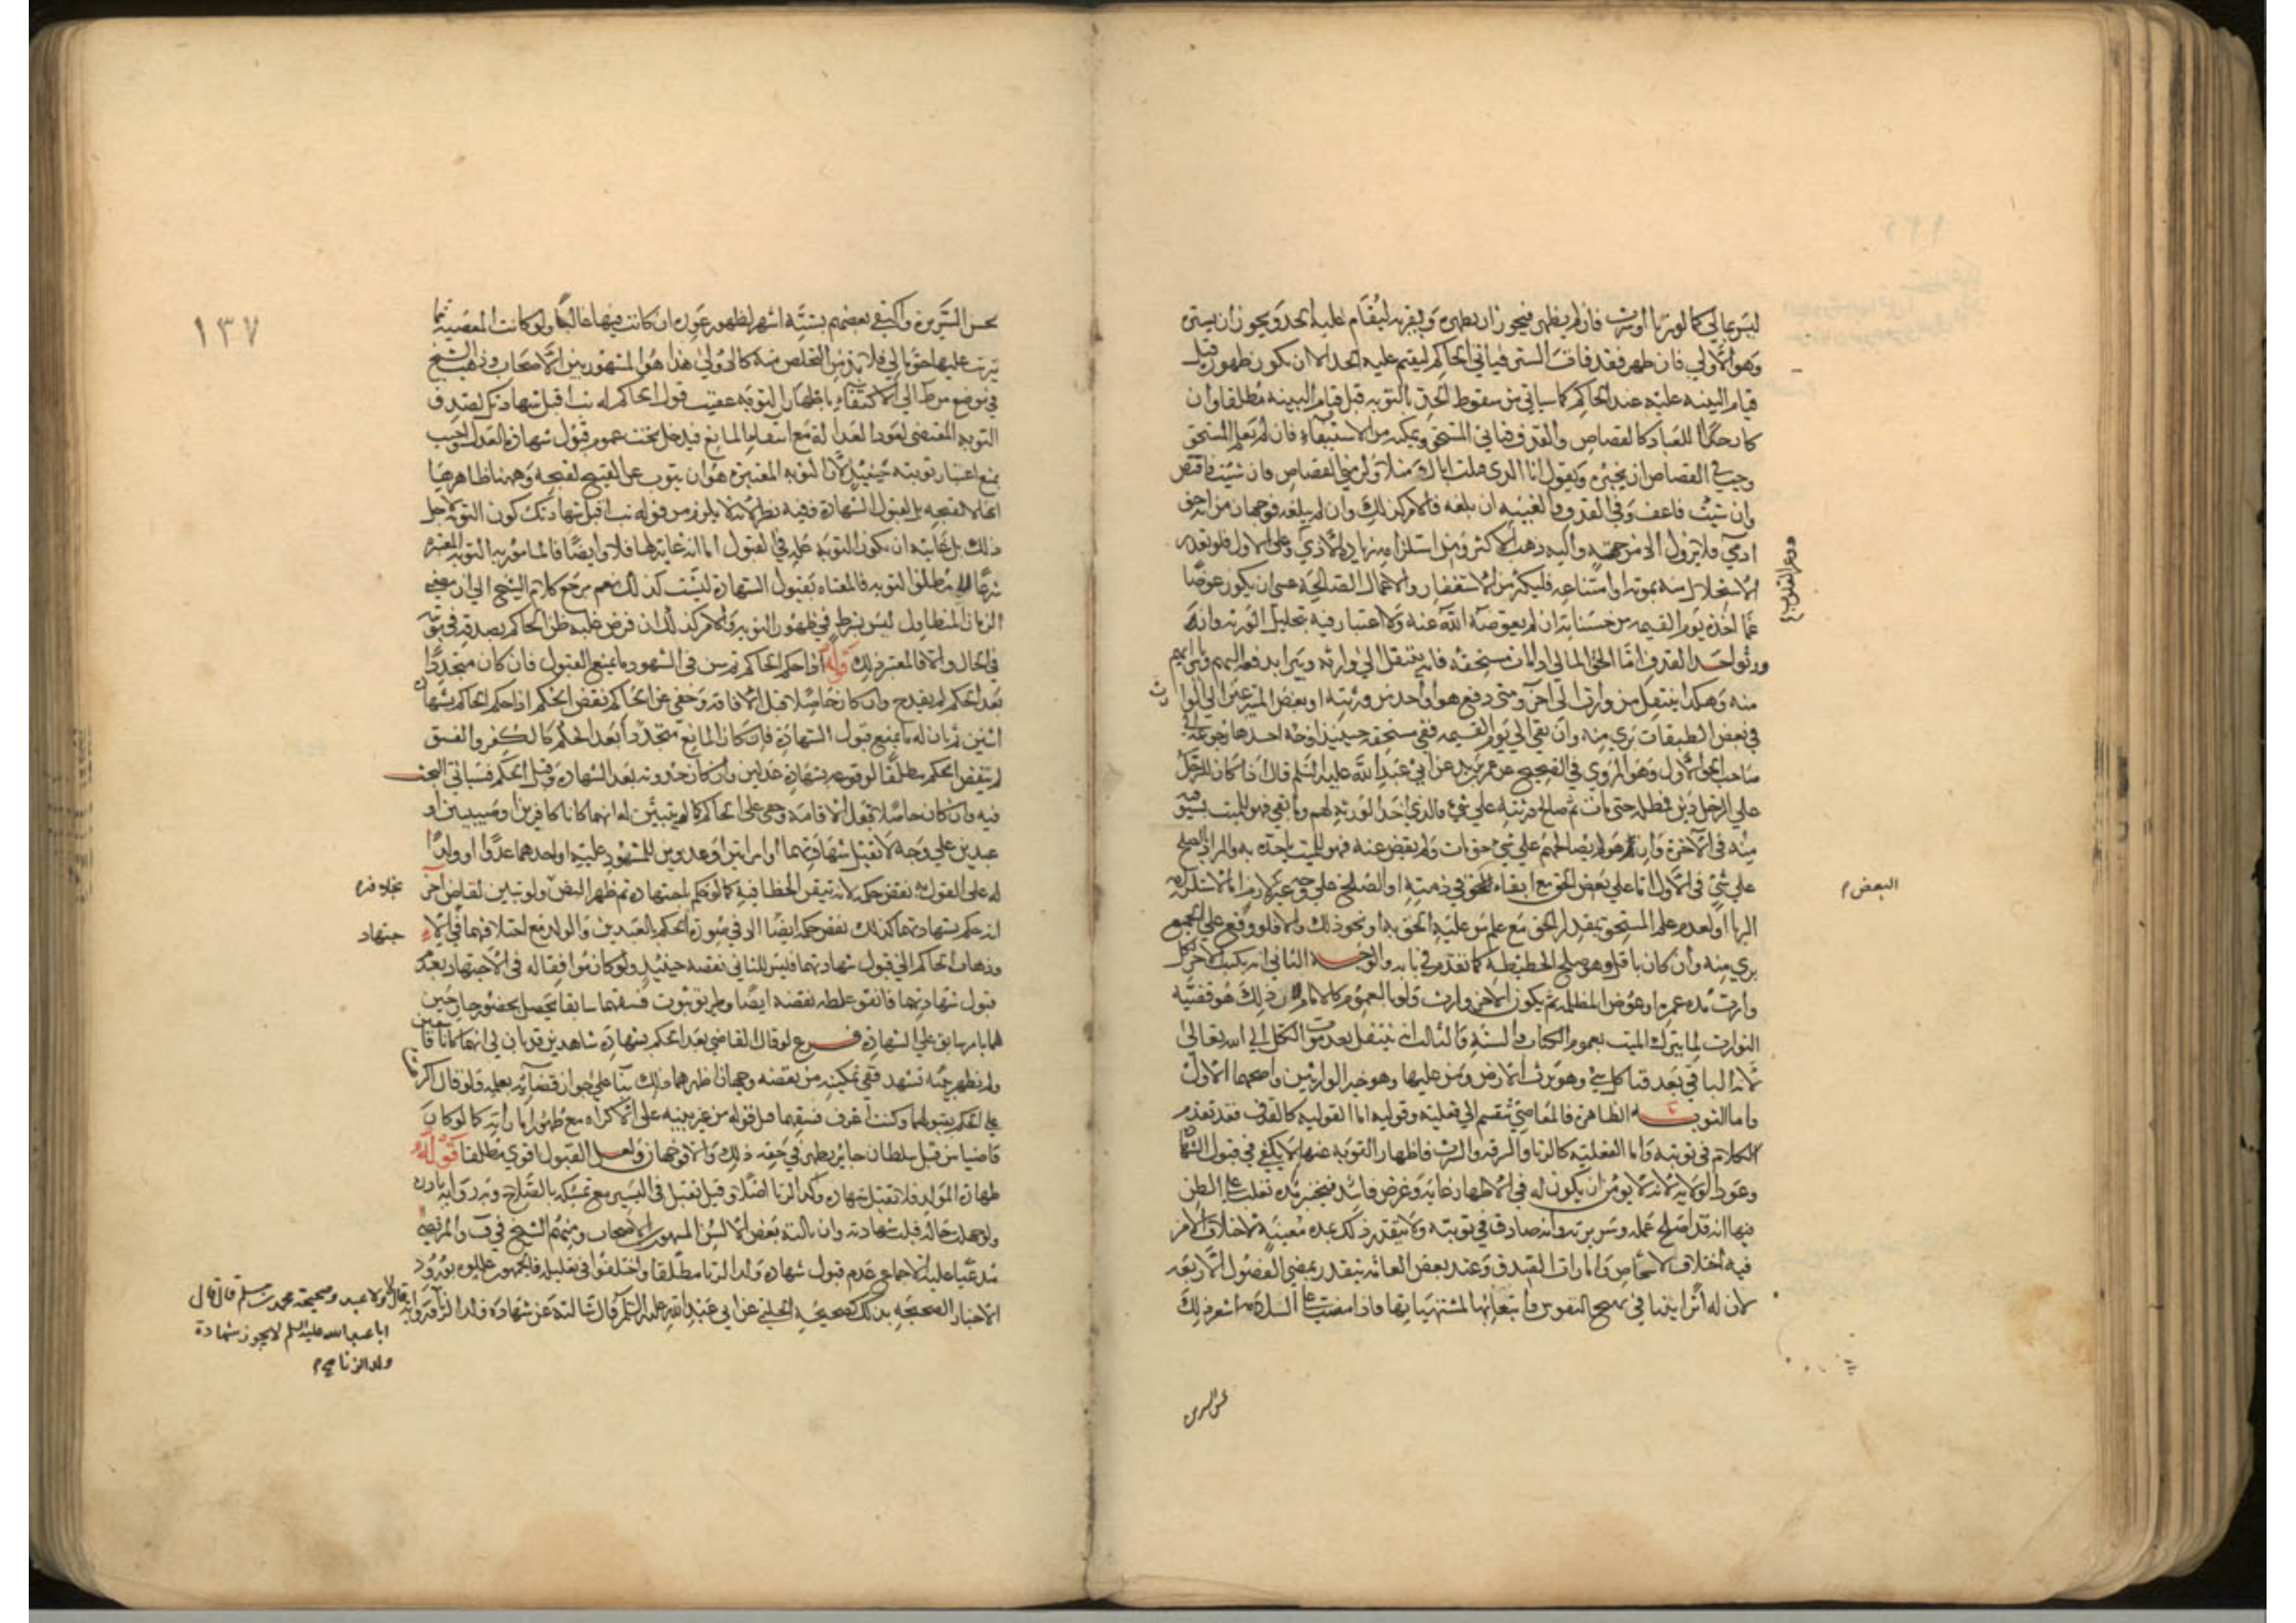 ليس بمالي كما لو زنا او شرب فان لم يظهر فيجوز ان يظهره ويقر به ليقام عليه الحد ويجوز ان يستره
وهو الاولي فان ظهر فقد فات الستر فياتي الحاكم ليقيم عليه الحد الا ان يكون ظهوره قبل
قيام البينه عليه عند الحاكم كما سياتي من سقوط الحد بالتوبه قبل قيام البينه مطلقا وان
كان حقا للعباد كالقصاص والقذف فياتي المستحق ويمكنه من الاستيفاء فان لم يعلم المستحق
وجب في القصاص ان يخبره ويقول انا الذي قتلت اباك مثلا ولزمني القصاص فان شئت فاقتص
وان شئت فاعف وفي القذف والغيبه ان بلغه فالامر كذلك وان لم يبلغه فوجهان من انه حق
ادمي فلا يزول الا من جهته واليه ذهب الاكثر ومن استلزامه زياده الاذي وعلي الاول فلو تعذر
الاستحلال منه بموته او امتناعه فليكثر من الاستغفار والاعمال الصالحه عسي ان يكون عوضا
عما اخذه يوم القيمه من حسناته ان لم يعوضه الله عنه ولا اعتبار فيه بتحليل الورثه وان
ورثوا حد القذف اما الحق المالي اذا مات مستحقه فانه ينتقل الي وارثه ويبرا بدفعه اليهم وبابرائهم
منه وهكذا ينتقل من وارث الي اخر ومتي دفع هو او احد من ورثته او بعض المتبرعين الي الوارث
في بعض الطبقات بري منه وان بقي الي يوم القيمه ففي مستحقه حينئذ اوجه احدها وهو
صاحب الحق الاول وهو المروي في الصحيح عن عمر بن يزيد عن ابي عبد الله عليه السلم قال اذا كان للرجل
علي الرجل دين فمطله حتي مات ثم صالح ورثته علي شي فالذي اخذ الورثه لهم وما بقي فهو للميت يستوفيه
منه في الاخره وان هو لم يصالحهم علي شي حتي مات ولم يقض عنه فهو للميت ياخذه به والمراد بالصلح
علي شي في الاول اما علي بعض الحق مع ابقاء الحق في ذمته او الصلح علي وجه غير لازم
اما لعدم علم المستحق بمقدار الحق مع علم من عليه الحق به او نحو ذلك والا فلو وقع علي الجميع
بري منه وان كان باقل وهو صلح الحطيطه كما تقدم في بابه والوجه الثاني انه يكتب لكل
وارث مده عمره او عوض المظلمه ثم يكون لاخر وارث ولو بالعموم كالامام لان ذلك هو قضيه
التوارث لما يترك الميت بعموم الكتاب والسنه والثالث انه ينتقل بعد موت الكل الي الله تعالي
لانه الباقي بعد فنا كل شي وهو يرث الارض ومن عليها وهو خير الوارثين واصحها الاول
واما التوبه الظاهره فالمعاصي تنقسم الي فعليه وقوليه اما القوليه كالقذف فقد تقدم
الكلام في توبته واما الفعليه كالزنا والسرقه والشرب فاظهار التوبه عنها لا يكفي في قبول الشهاده
وعود الولايه لانه لا يومن ان يكون له في الاظهار غايه وغرض فاسد فيختبر مده تغلب علي الظن
فيها انه قد اصلح عمله وسريرته وانه صادق في توبته ولا يتقدر ذلك بمده معينه لاختلاف الامر
فيه باختلاف الاشخاص وامارات الصدق وعند بعض العامه يتقدر بمضي الفصول الاربعه
لان له اثرا بينا في تهييج النفوس وانبعاثها لمشتهياتها فاذا مضت علي السلامه اشعر ذلك
البعض م
بحسن السريره واكتفي بعضهم بسته اشهر لظهور عوده ان كانت فيها غالبا ولو كانت المعصيه مما
يترتب عليها حق مالي فلا بد من التخلص منه كالاولي هذا هو المشهور بين الاصحاب وذهب الشيخ
في موضع من ط الي الاكتفاء باظهار التوبه عقيب قول الحاكم له تب اقبل شهادتك لصدق
التوبه المقتضي لعود العداله مع انتفاء المانع فيدخل تحت عموم قبول شهاده العدل واجيب
بمنع اعتبار توبته حينئذ لان التوبه المعتبره هو ان يتوب عن القبيح لقبحه وههنا ظاهرها
انها لا لقبحه بل لقبول الشهاده وفيه نظر لانه لا يلزم من قوله تب اقبل شهادتك كون التوبه لاجل
ذلك بل غايته ان يكون التوبه عله في القبول اما انه غايه لها فلا وايضا فالمامور به التوبه المعتبره
شرعا لا مطلق التوبه فالمغياه بقبول الشهاده ليست كذلك نعم مرجع كلام الشيخ الي ان مضي
الزمان المتطاول ليس بشرط في ظهور التوبه والامر كذلك ان فرض غلبه ظن الحاكم بصدقه في توبته
في الحال والا فالمعتبر ذلك قوله اذا حكم الحاكم ثم تبين في الشهود ما يمنع القبول فان كان متجددا
بعد الحكم لم يقدح وان كان حاصلا قبل الاقامه وخفي عن الحاكم نقض الحكم اذا حكم الحاكم بشهاده
اثنين ثم بان له ما يمنع قبول الشهاده فان كان المانع متجددا بعد الحكم كالكفر والفسق
لم ينقض الحكم مطلقا لوقوعه بشهاده عدلين وان كان حدوثه بعد الشهاده وقبل الحكم فسياتي البحث
فيه وان كان حاصلا قبل الاقامه وخفي علي الحاكم كما لو تبين له انهما كانا كافرين او صبيين او
عبدين علي وجه لا تقبل شهادتهما او امراتين او عدوين للمشهود عليه او احدهما عدوا او ولدا
له علي القول به نقض حكمه لانه تيقن الخطا فيه كما لو حكم باجتهاده ثم ظهر النص بخلافه ولو تبين لقاض اخر
انه حكم بشهادتهما كذلك نقض حكمه ايضا الا في صوره الحكم بالعبدين والولد مع اختلافهما في الاجتهاد
وذهاب الحاكم الي قبول شهادتهما فليس للثاني نقضه حينئذ ولو كان موافقا له في الاجتهاد بعدم
قبول شهادتهما فاتفق غلطه نقضه ايضا وطريق ثبوت فسقهما سابقا يحصل بحضور جارحين
لهما بامر سابق علي الشهاده فرع لو قال القاضي بعد الحكم بشهاده شاهدين قد بان لي انهما كانا فاسقين
ولم تظهر بينه تشهد ففي تمكينه من نقضه وجهان اظهرهما ذلك بناء علي جواز قضائه بعلمه فلو قال اكرهت
علي الحكم بقولهما وكنت اعرف فسقهما قبل قوله من غير بينه علي الاكراه مع ظهور اماراته كما لو كان
قاضيا من قبل سلطان جائر يظهر في حقه ذلك والا فوجهان ولعل القبول اقوي مطلقا قوله
طهاره المولد فلا تقبل شهاده ولد الزنا اصلا وقيل تقبل في اليسير مع تمسكه بالصلاح وبه روايه نادره
ولو جهلت حاله قبلت شهادته وان نالته بعض الالسن المشهور بين الاصحاب ومنهم الشيخ في ف والمرتضي
مدعيا عليه الاجماع عدم قبول شهاده ولد الزنا مطلقا واختلفوا في تعليله فالجمهور عللوه بورود
الاخبار الصحيحه بذلك كصحيحه الحلبي عن ابي عبد الله عليه السلم قال سالته عن شهاده ولد الزنا
فقال لا ولا عبد وصحيحة محمد بن مسلم قال قال
ابا عبد الله عليه السلم لا يجوز شهادة
ولد الزنا صح م
١٣٧